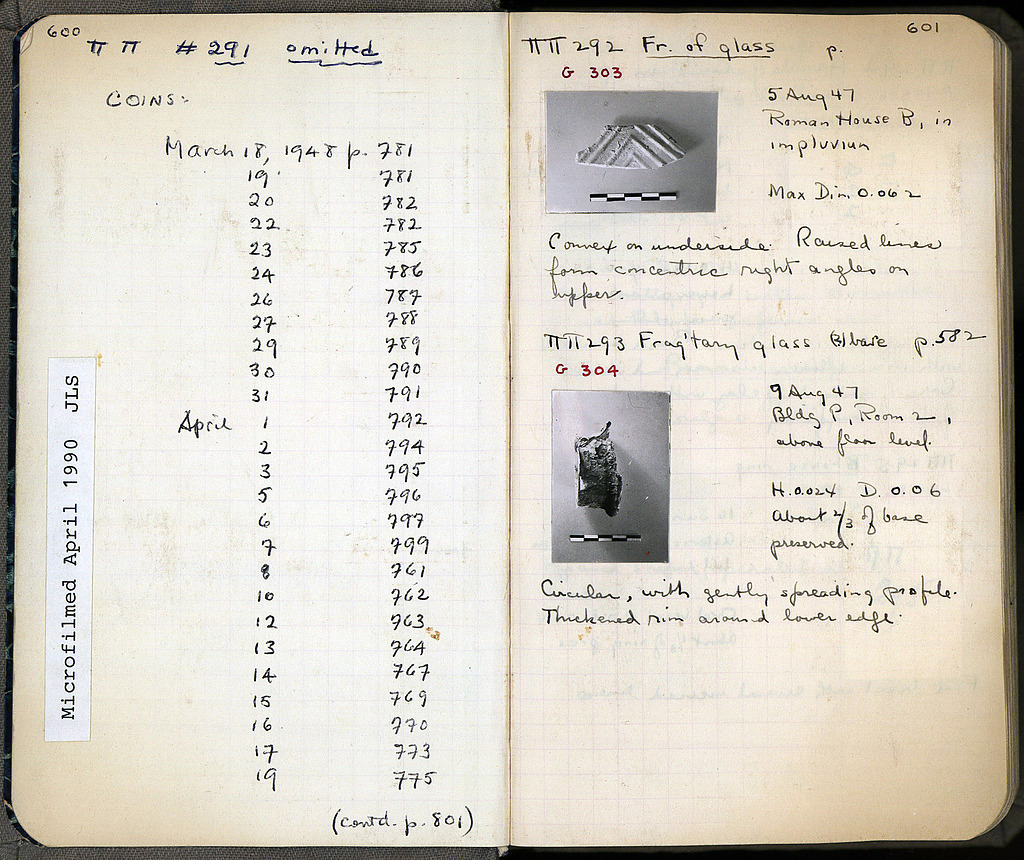 600
ΠΠ # 291 omitted
COINS:
March 18, 1948 p. 781
19 781
20 782
22 782
23 785
24 786
26 787
27 788
29 789
30 790
31 791
April 1 792
2 794
3 795
5 796
6 797
7 799
8 761
10 762
12 763
13 764
14 767
15 769
16 770
17 773
19 775
(contd. p. 801)
Microfilmed April 1990 JLS
601
ΠΠ 292 Fr. of glass p.
G 303
5 Aug 47
Roman House B, in
impluvium
Max Dim 0.062
Convex on underside. Raised lines
form concentric right angles on
upper.
ΠΠ 293 Frag'tary glass B/base p. 582
G 304
9 Aug 47
Bldg P, Room 2,
above floor level.
H. 0.024 D. 0.06
About 2/3 of base
preserved.
Circular, with gently spreading profile.
Thickened rim around lower edge.